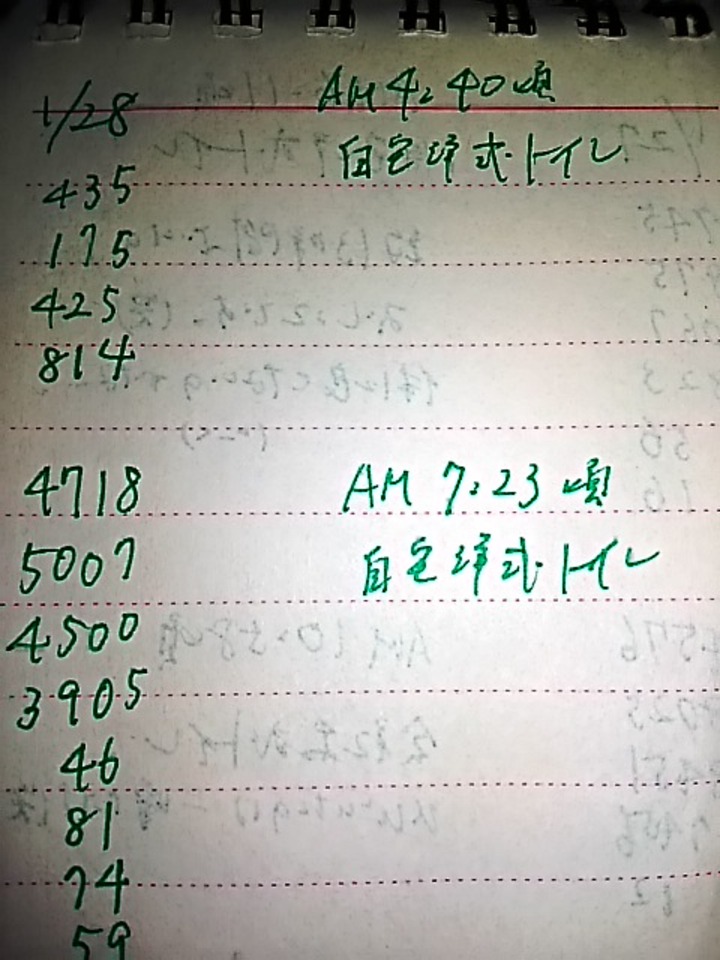 1/28 AM 4:40頃
自宅洋式トイレ
435
175
425
814
4718 AM 7:23頃
5007 自宅洋式トイレ
4500
3905
46
81
74
59